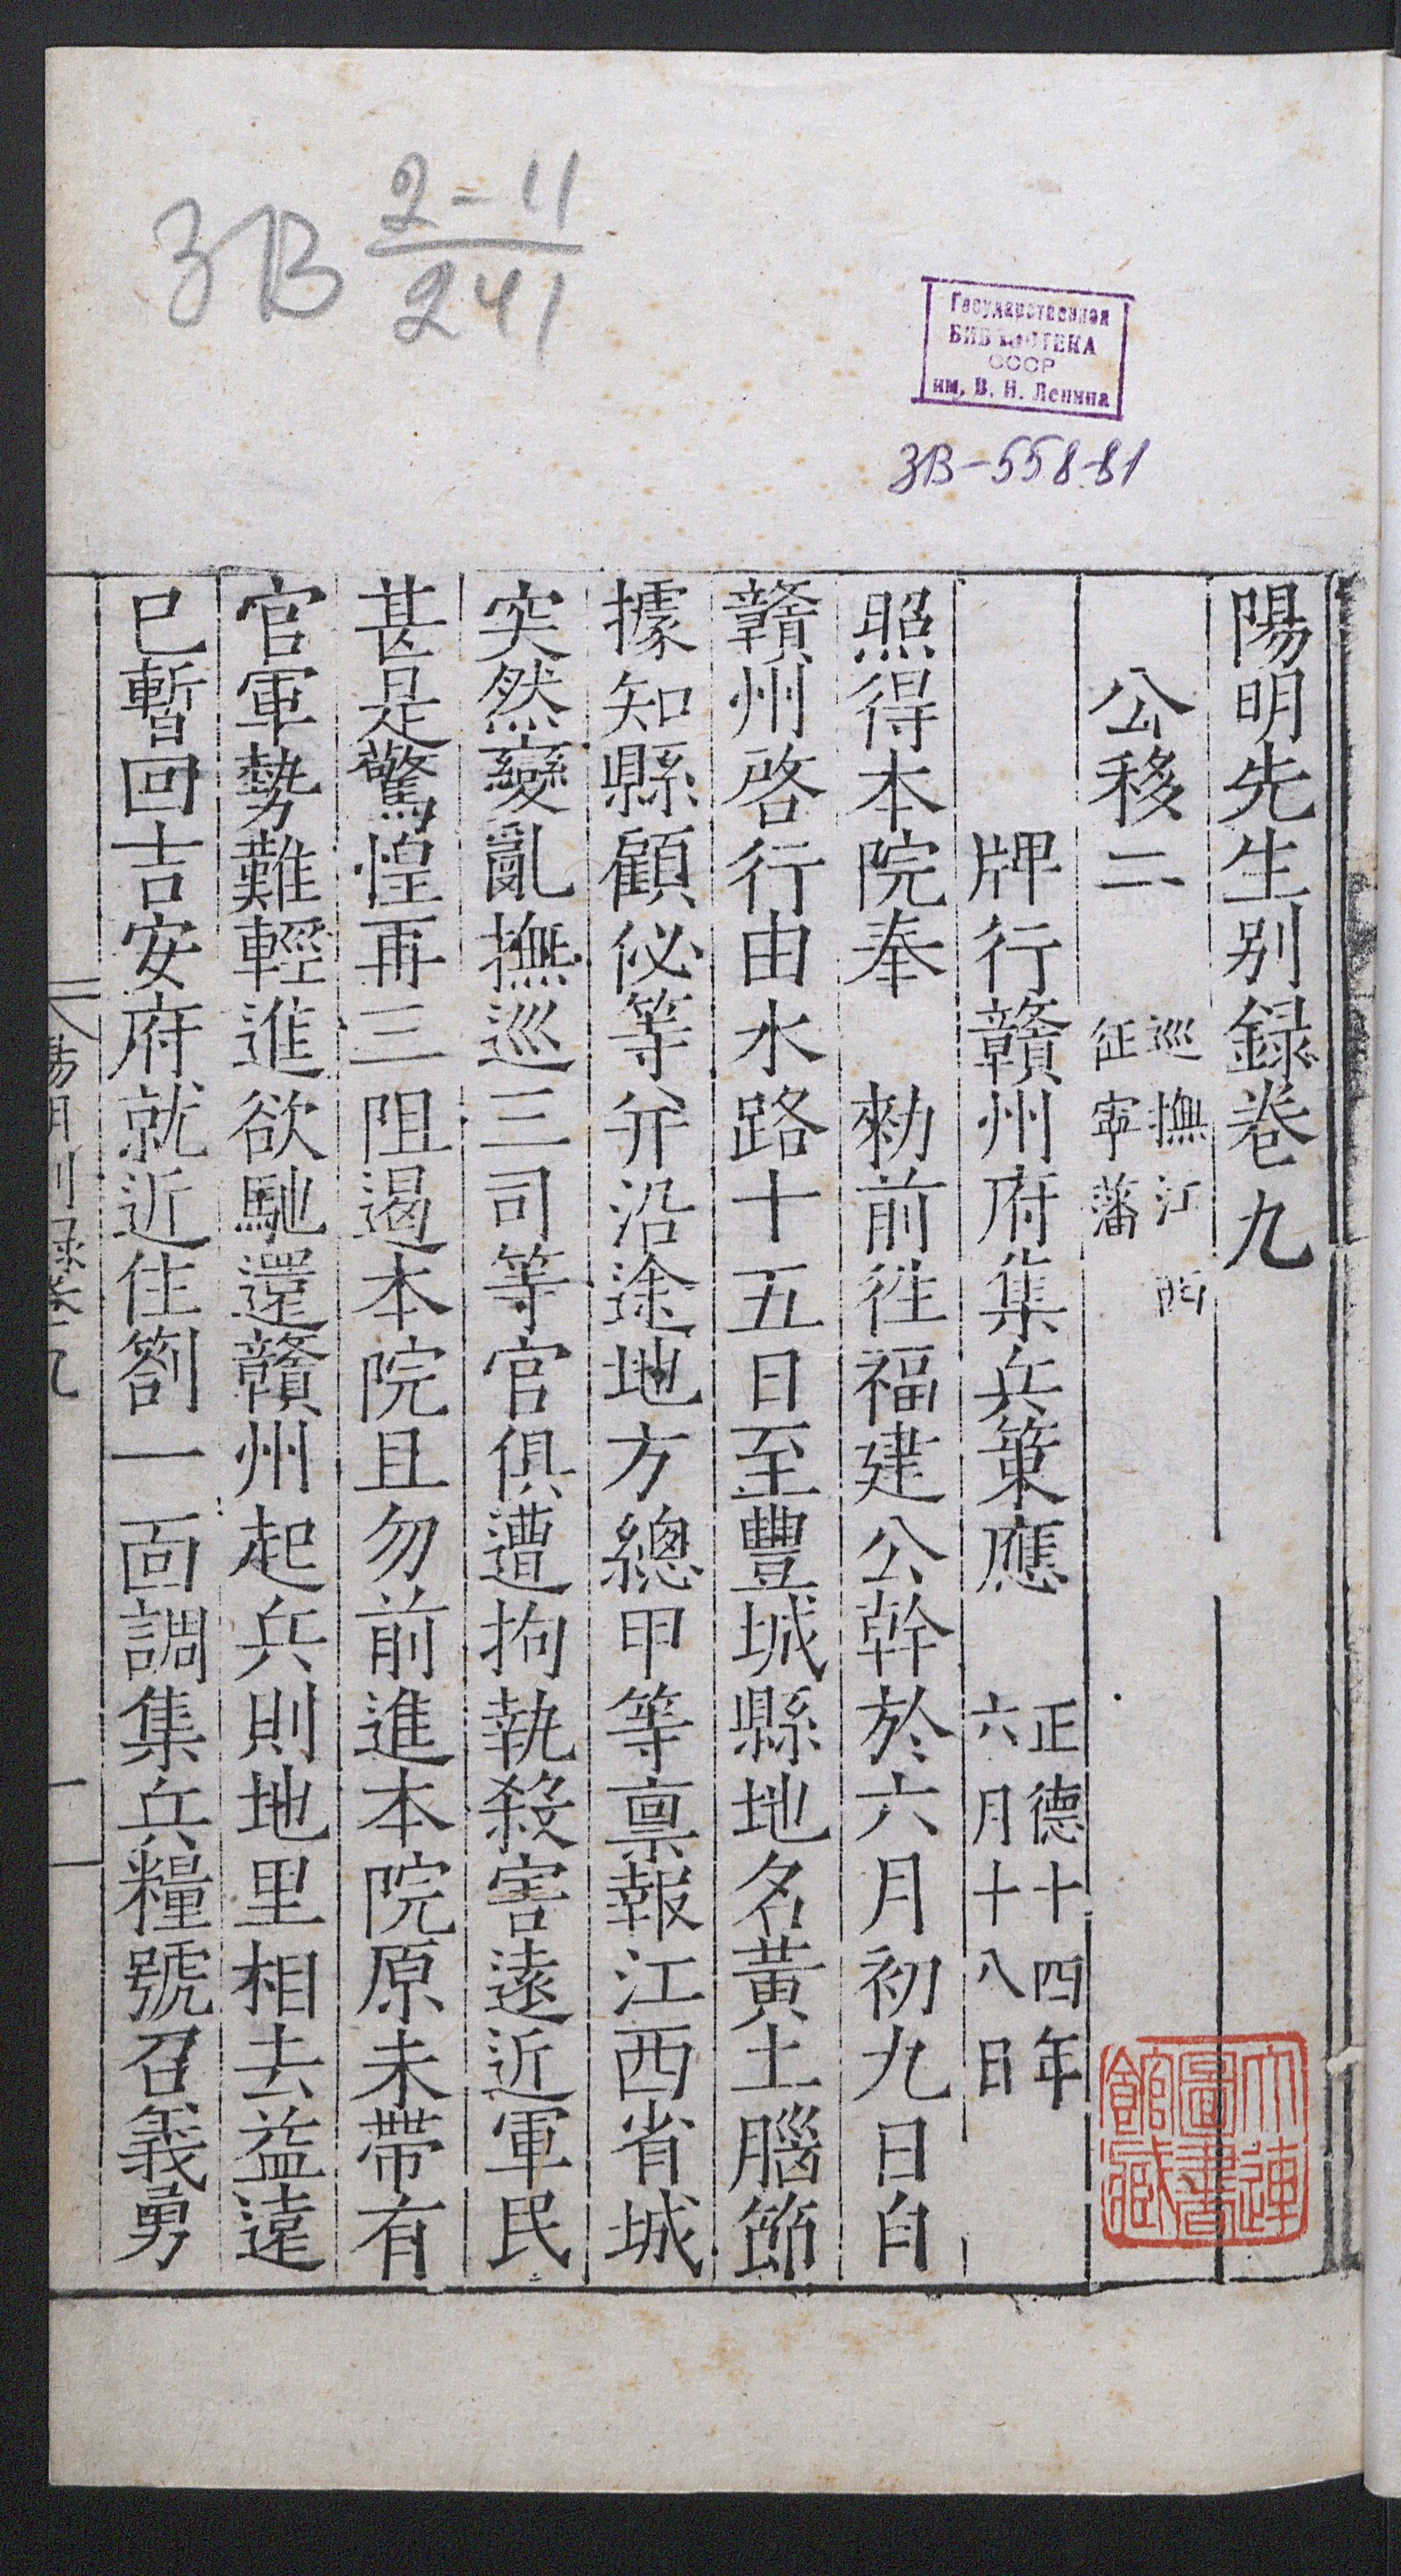 ЗВ 2-11
241
Государственная
БИБЛИОТЕКА
СССР
им. В. И. Ленина
ЗВ-558-81
陽明先生别録卷九
公移二
巡撫江西
征寧藩
牌行贛州府集兵策應
正德十四年
六月十八日
照得本院奉 勑前徃福建公幹於六月初九日自
贛州啓行由水路十五日至豐城縣地名黄土腦節
據知縣顧佖等并沿途地方總甲等禀報江西省城
突然變亂撫巡三司等官俱遭拘執殺害逺近軍民
甚是驚惶再三阻遏本院且勿前進本院原未帶有
官軍勢難輕進欲馳還贛州起兵則地里相去益遠
巳暫回吉安府就近住劄一面調集兵糧號召義勇
陽明别録卷九
一
大連
圖書
館藏